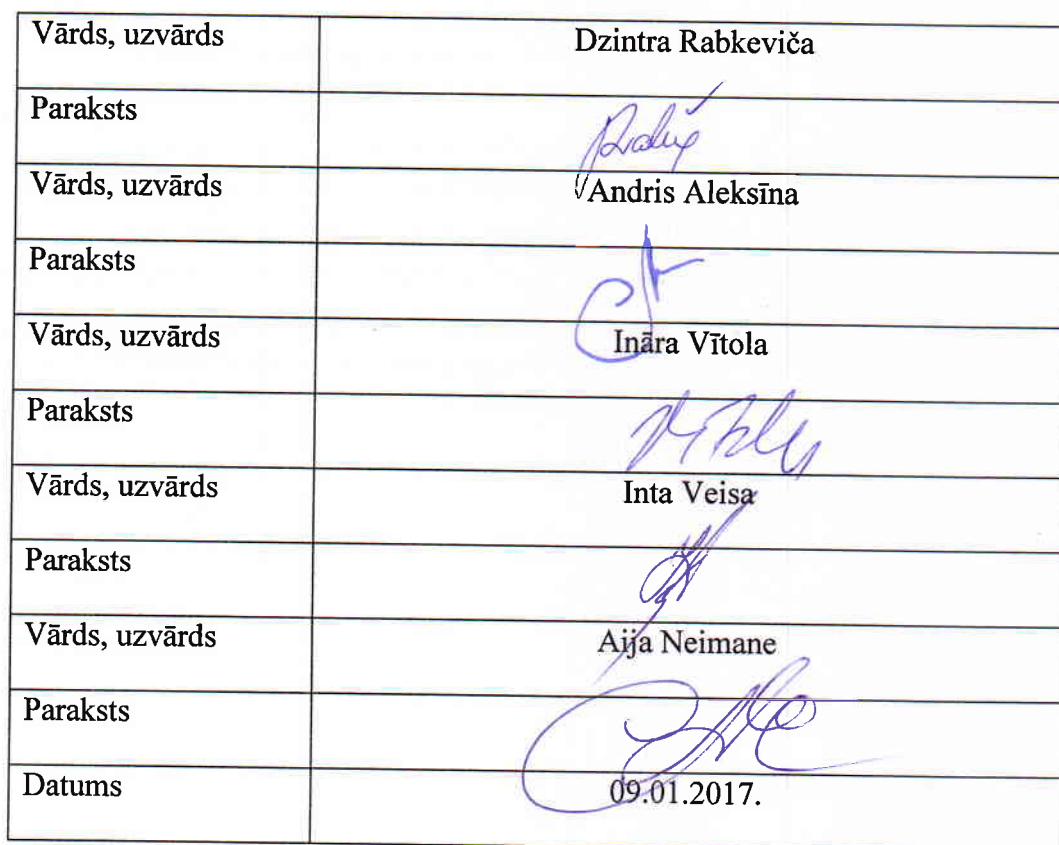 Vārds, uzvārds Dzintra Rabkeviča
Paraksts
Vārds, uzvārds Andris Aleksīna
Paraksts
Vārds, uzvārds Ināra Vītola
Paraksts
Vārds, uzvārds Inta Veisa
Paraksts
Vārds, uzvārds Aija Neimane
Paraksts
Datums 09.01.2017.